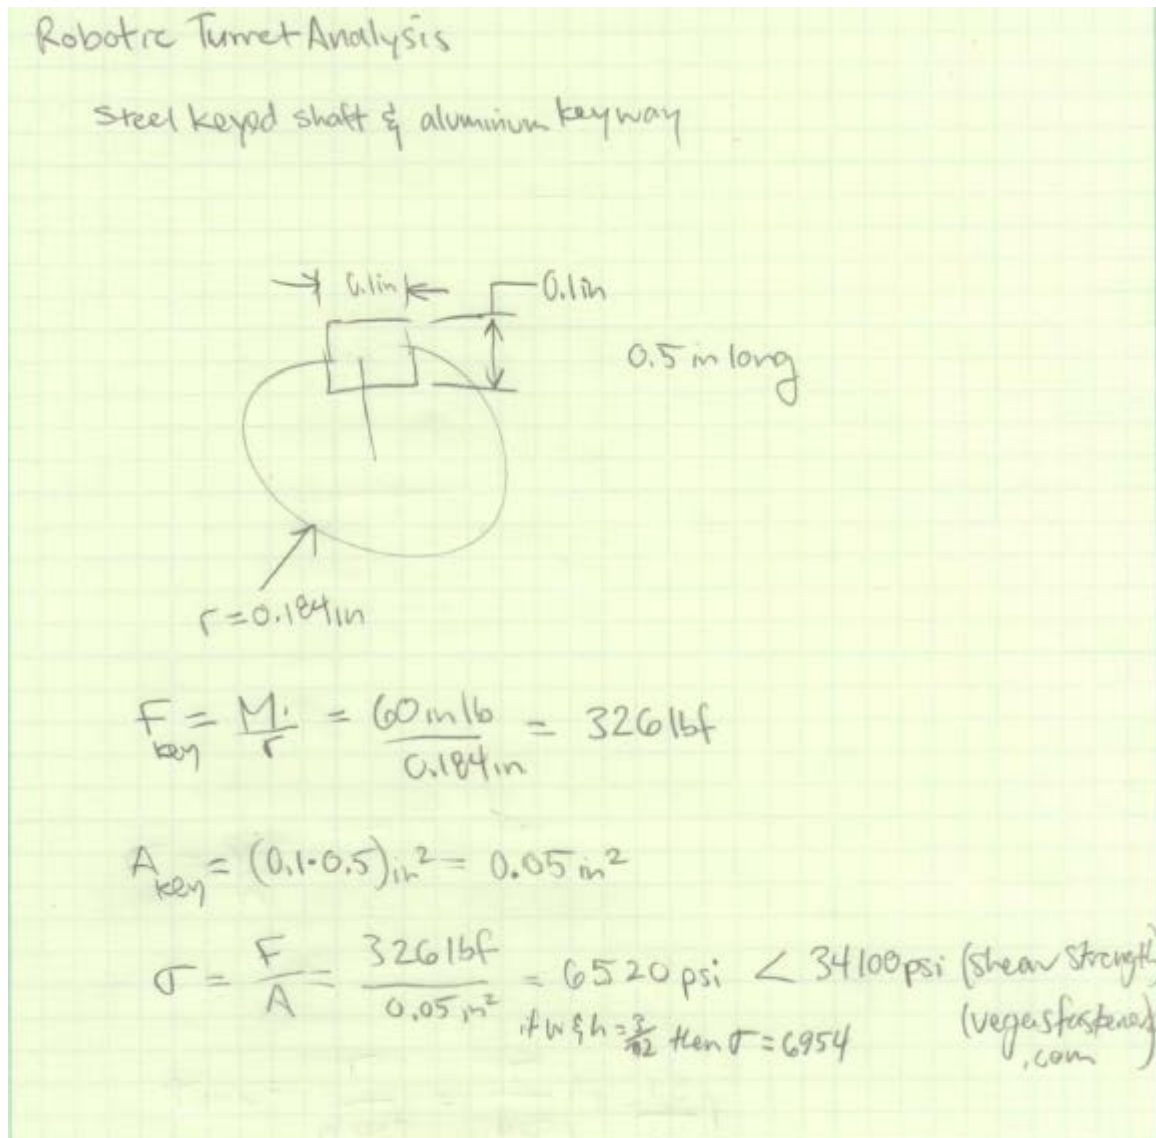 Robotic Turret Analysis
Steel keyed shaft & aluminum keyway
0.1in
0.1in
0.5 in long
r=0.184in
F key = M/r = 60inlb/0.184in = 326lbf
A key = (0.1·0.5)in² = 0.05in²
σ = F/A = 326lbf/0.05in² = 6520psi < 34100psi (Shear Strength)
if w & h = 3/32 then σ = 6954
(vegasfastener.com)